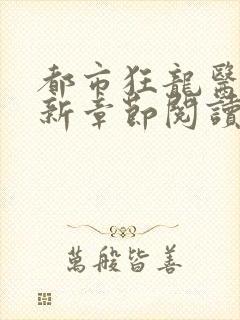 都市狂龍醫
新章節閱讀
萬般皆善